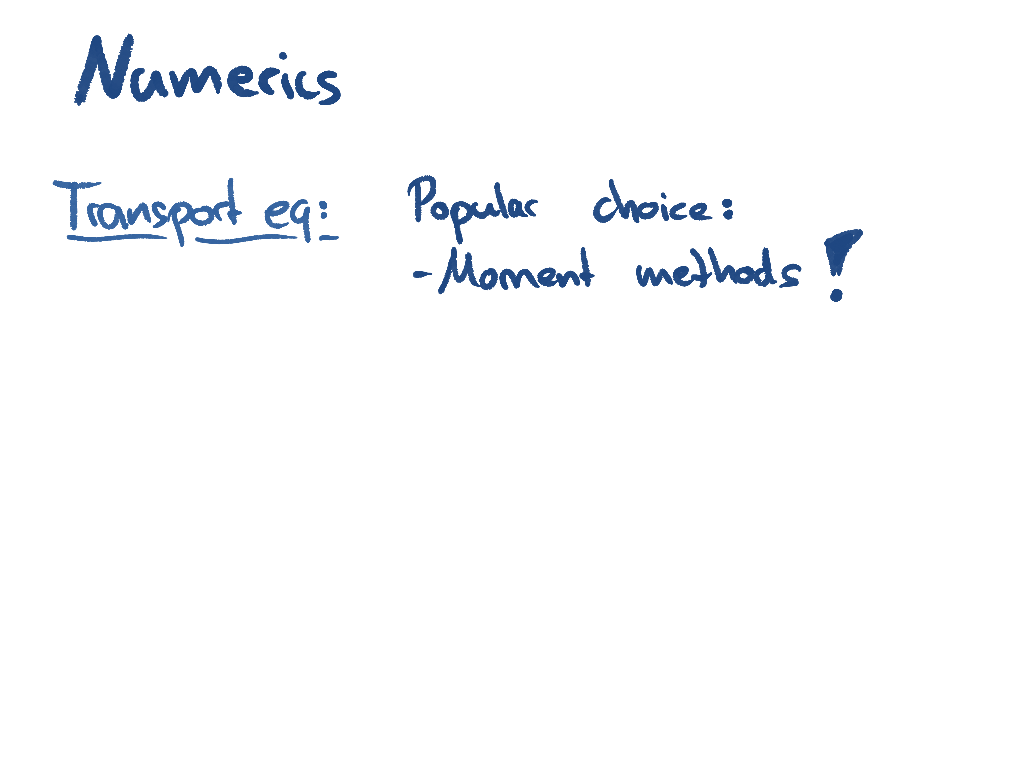 Numerics
Transport eq: Popular choice:
- Moment methods !